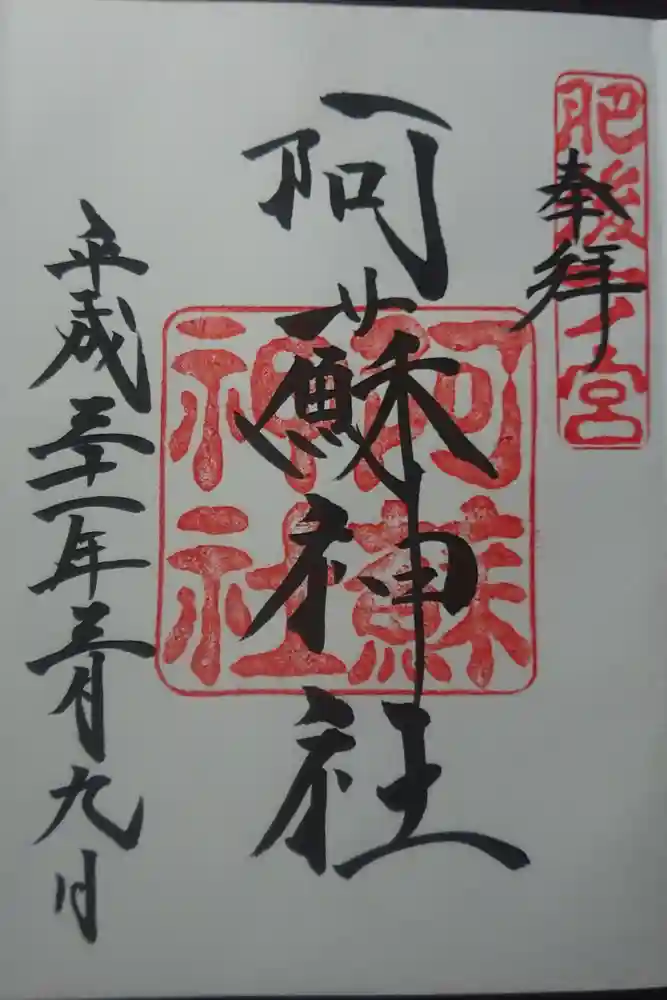 肥後一ノ宮
奉拝
阿蘇神社
阿蘇神社
平成三十一年三月九日